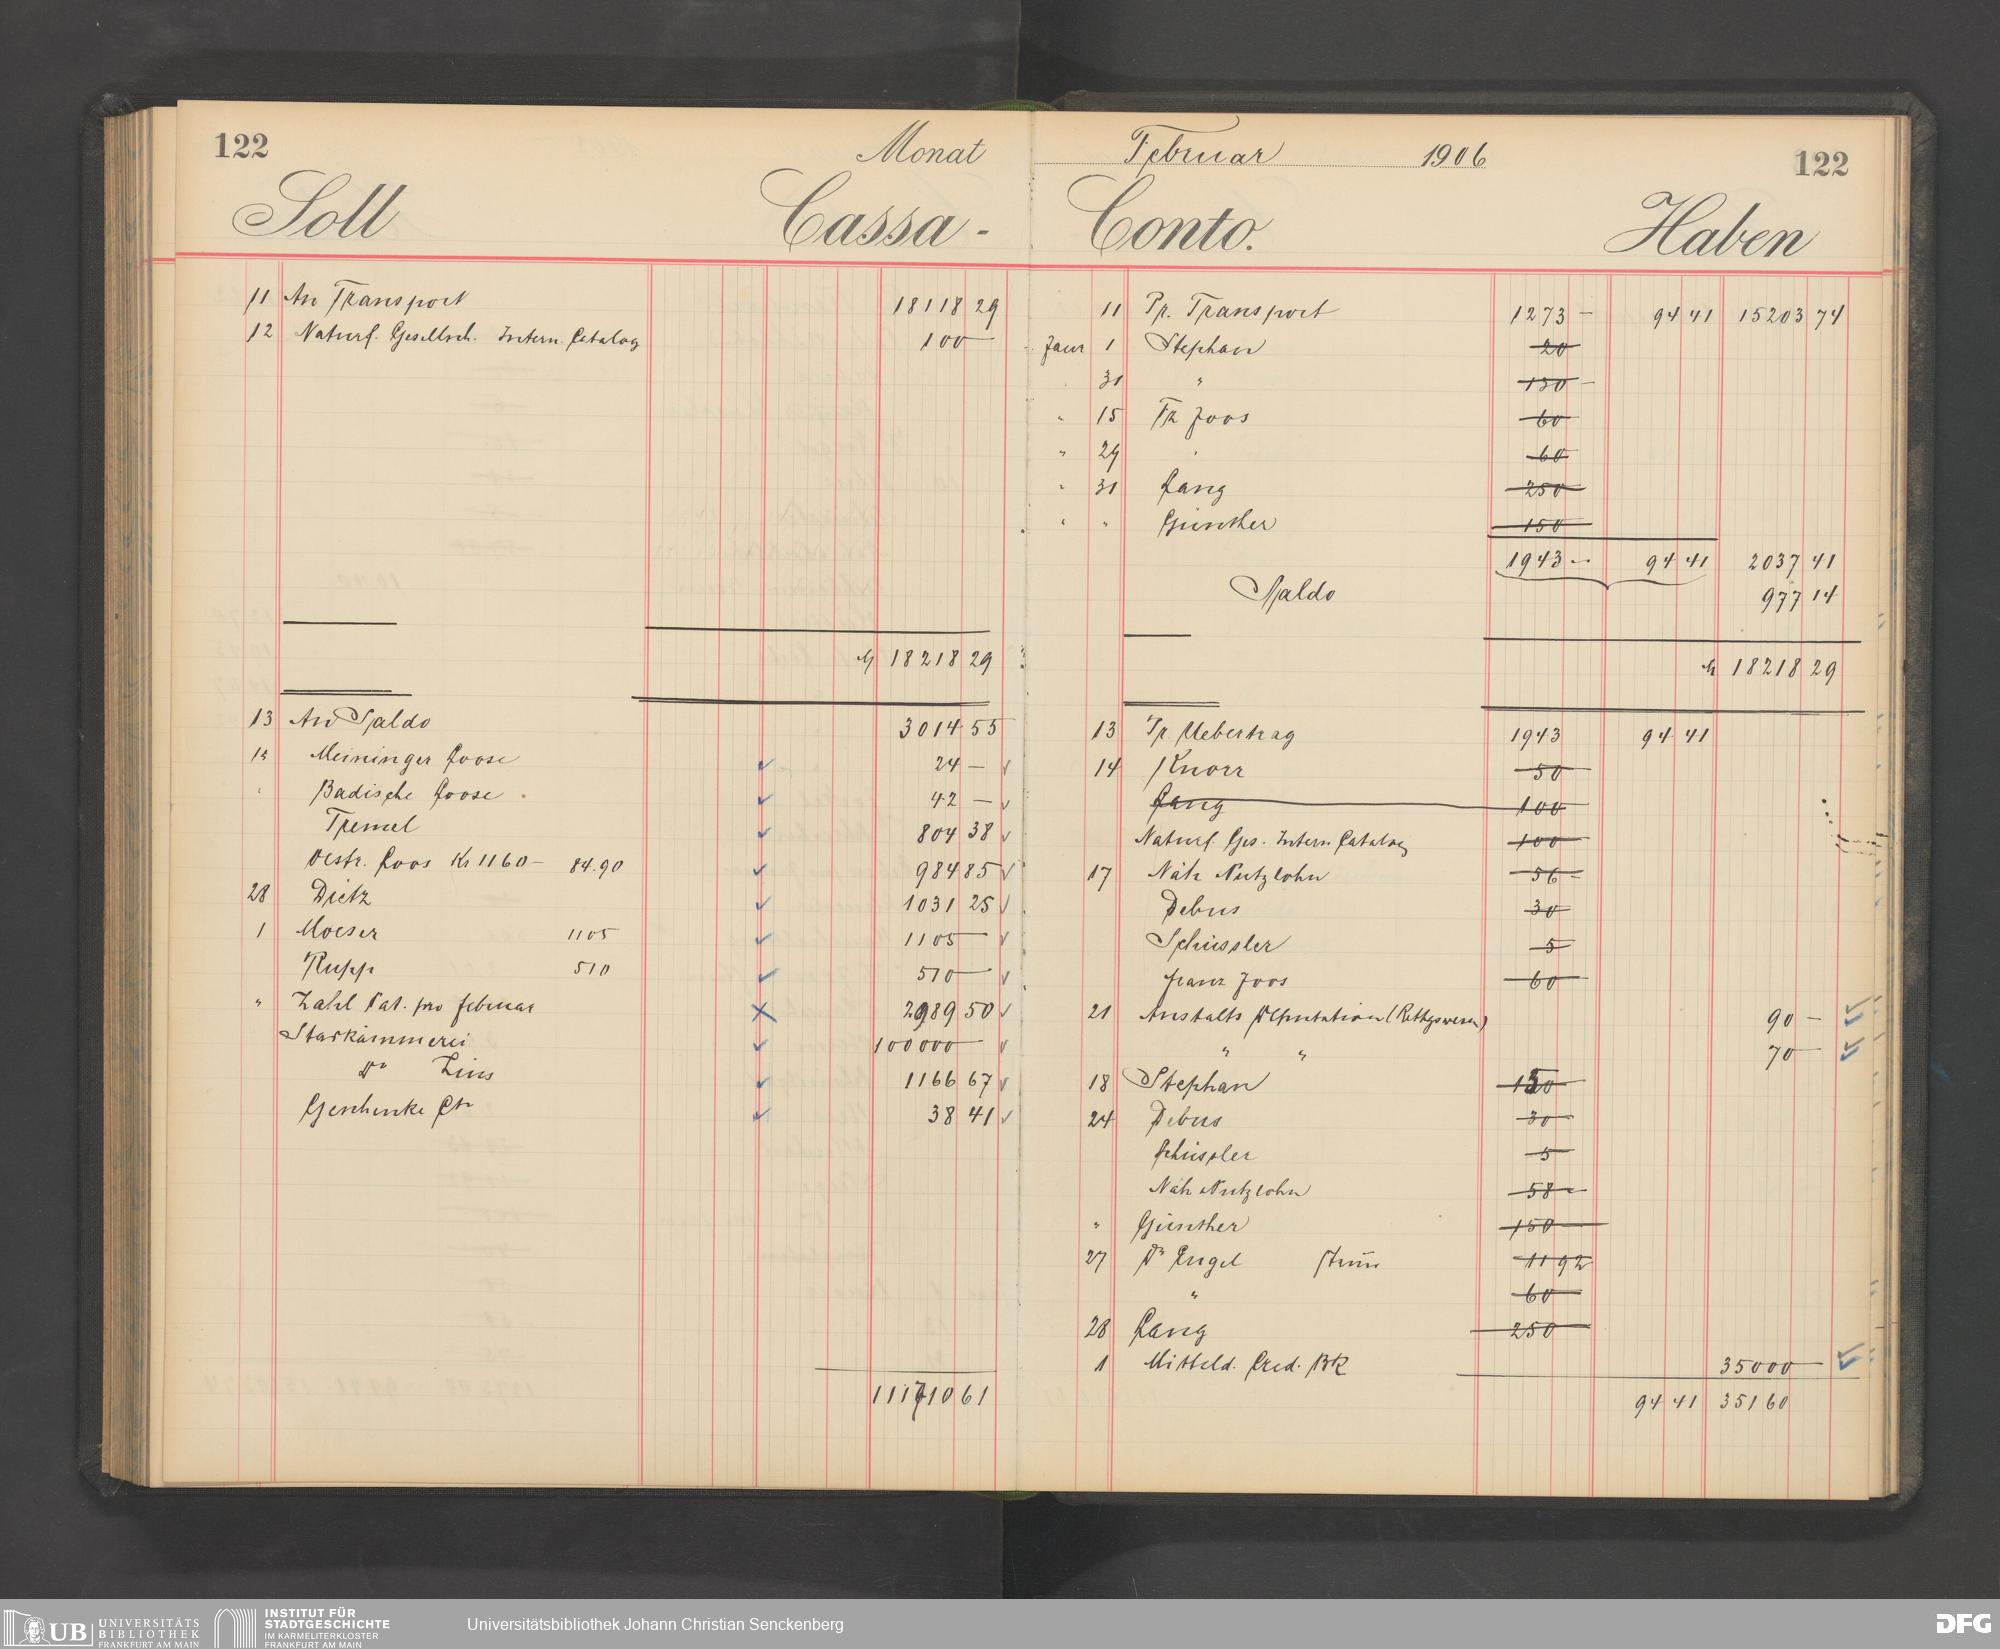 122
Monat
Februar 1906
122
Soll
Cassa-
Conto.
Haben
11 An Transport 18118 29
12 Naturf. Gesellsch. Intern. Catalog 100 —
M 18218 29
13 An Saldo 3014 55
Meininger Loose 24 —
Badische Loose 42 —
Tremel 804 38
Oestr. Loos Kr 1160 — 84.90 984 85
28 Dietz 1031 25
1 Moeser 1105 1105 —
Rupp 510 510 —
" Zahl Pat. pro Februar 2989 50
Starkämmerei 100000 —
do Zins 1166 67
Geschenke Cto 38 41
111710 61
11 Pr. Transport 1273 — 94 41 15203 74
Janr 1 Stephan 20
31 " 130 —
" 15 Fr Joos 60
" 29 " 60
" 31 Lang 250
" " Günther 150
1943 — 94 41 2037 41
Saldo 977 14
M 18218 29
13 Pr Uebertrag 1943 94 41
14 Knorr 50
Lang 100
Naturf. Ges. Intern. Catalog 100
17 Näh Putzlohn 56 —
Debus 30
Schüssler 5
Franz Joos 60
21 Anstalts Deputation (Rettgswesen) 90 —
" " 70 —
18 Stephan 150
24 Debus 30
Schüssler 5
Näh Putzlohn 58 —
" Günther 150
27 Dr Engel 11 92
" 60
28 Lang 250
1 Mitteld. Cred. Bk 35000 —
94 41 35160
UB UNIVERSITÄTS
BIBLIOTHEK
FRANKFURT AM MAIN
INSTITUT FÜR
STADTGESCHICHTE
IM KARMELITERKLOSTER
FRANKFURT AM MAIN
Universitätsbibliothek Johann Christian Senckenberg
DFG